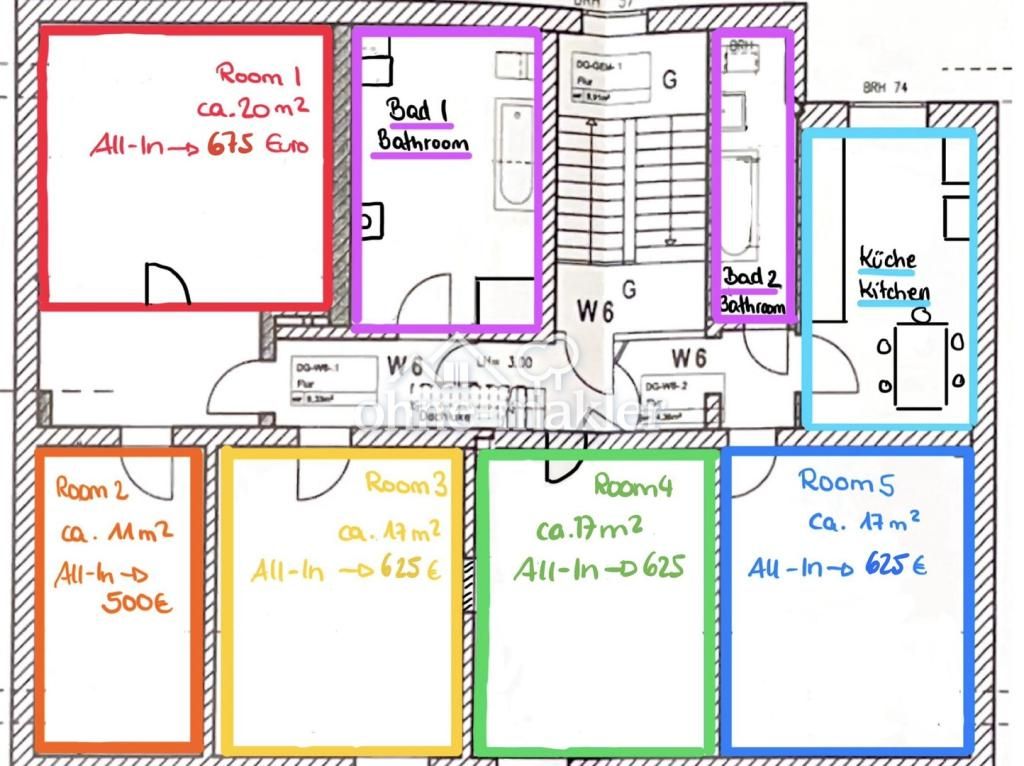 Room 1
ca. 20 m²
All-In → 675 Euro
Bad 1
Bathroom
DG-GEM- 1
Flur
G
BRH
BRH 74
Bad 2
Bathroom
Küche
Kitchen
G
W6
W6
DG-W6-.1
Flur
LH= 3.00
W6
DG-W6-.2
Dachluke
ohne-makler
Room 2
ca. 11m²
All-In →
500€
Room 3
ca. 17m²
All-In → 625€
Room 4
ca. 17m²
All-In → 625
Room 5
ca. 17m²
All-In → 625€